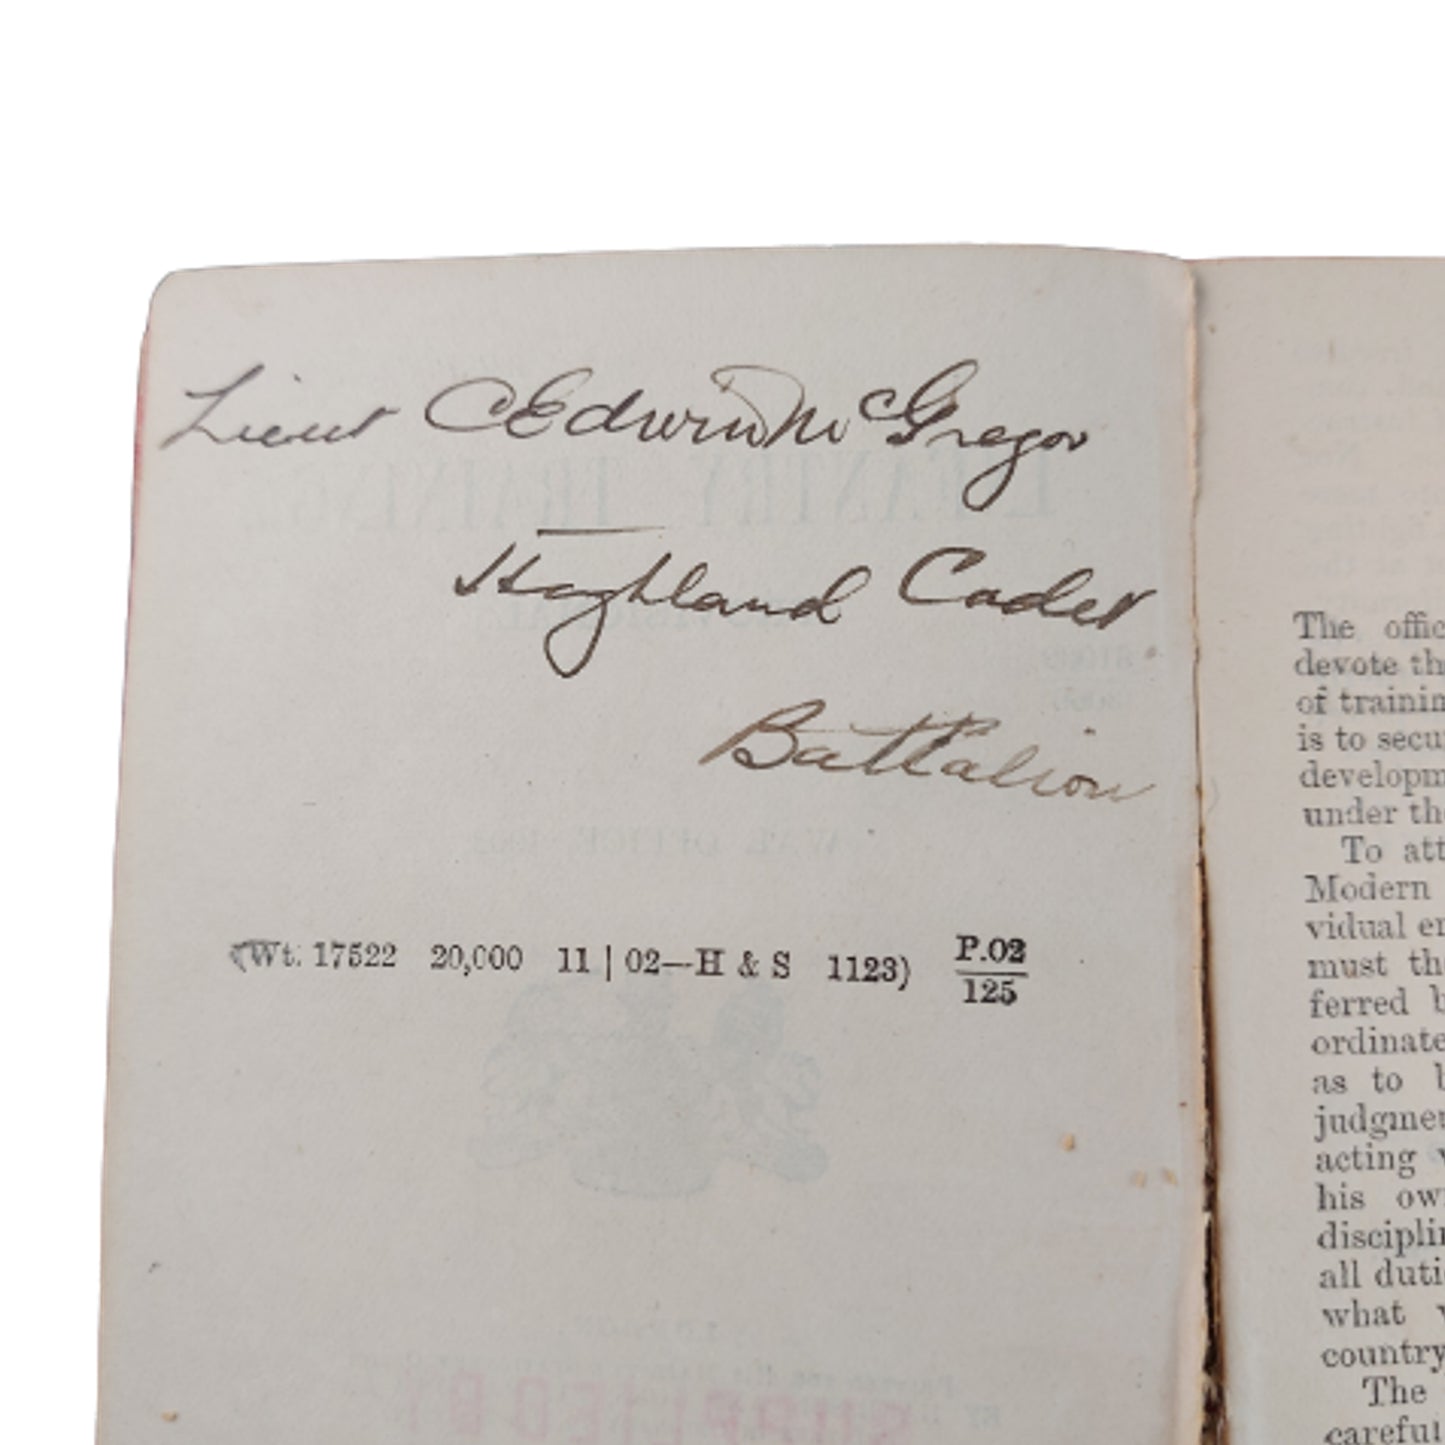 Lieut C Edwin McGregor
Highland Cadet
Battalion
(Wt. 17522 20,000 11 | 02—H & S 1123) P.02
125
The offic
devote th
of trainin
is to secu
developm
under the
To att
Modern
vidual en
must the
ferred b
ordinate
as to b
judgmen
acting v
his own
disciplin
all duti
what v
country
The
careful